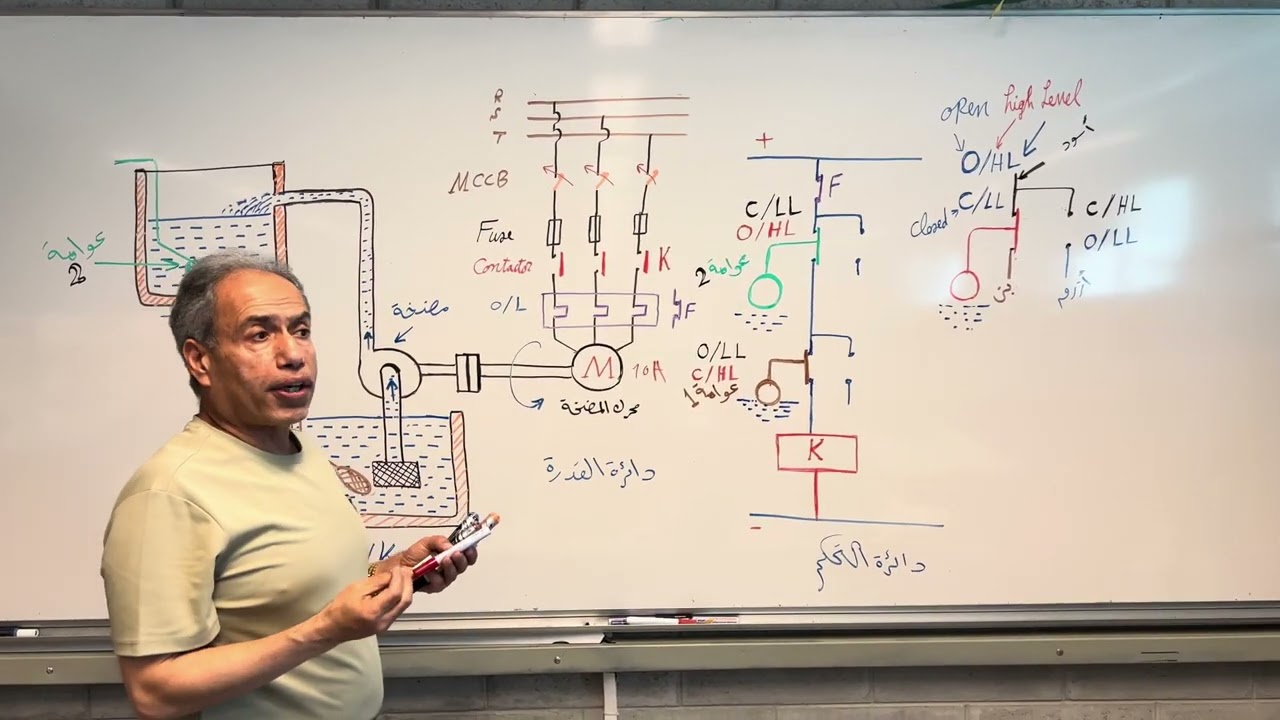 عوامة
2
مضخة
R
S
T
MCCB
Fuse
Contactor
K
O/L
F
M
10A
محرك المضخة
دائرة القدرة
+
F
C/LL
O/HL
عوامة 2
O/LL
C/HL
عوامة 1
K
-
دائرة التحكم
open high Level
O/HL
أسود
C/LL
Closed
C/HL
O/LL
بني
أزرق